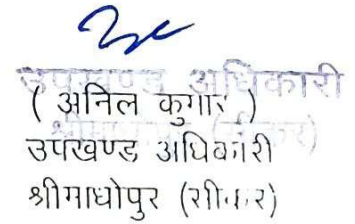 उपखण्ड अधिकारी
( अनिल कुमार )
उपखण्ड अधिकारी
श्रीमाधोपुर (सीकर)